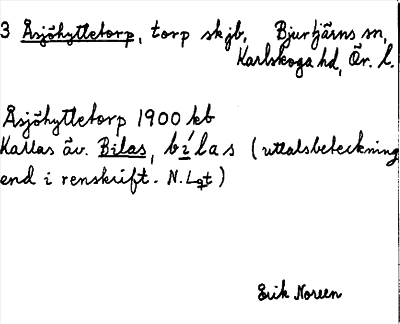 3 Åsjöhyttetorp, torp skjb, Bjurtjärns sn,
Karlskoga hd, Ör. l.
Åsjöhyttetorp 1900 kb
Kallas äv. Bilas, bílas (uttalsbeteckning
end i renskrift. N. Lgt)
Erik Noreen